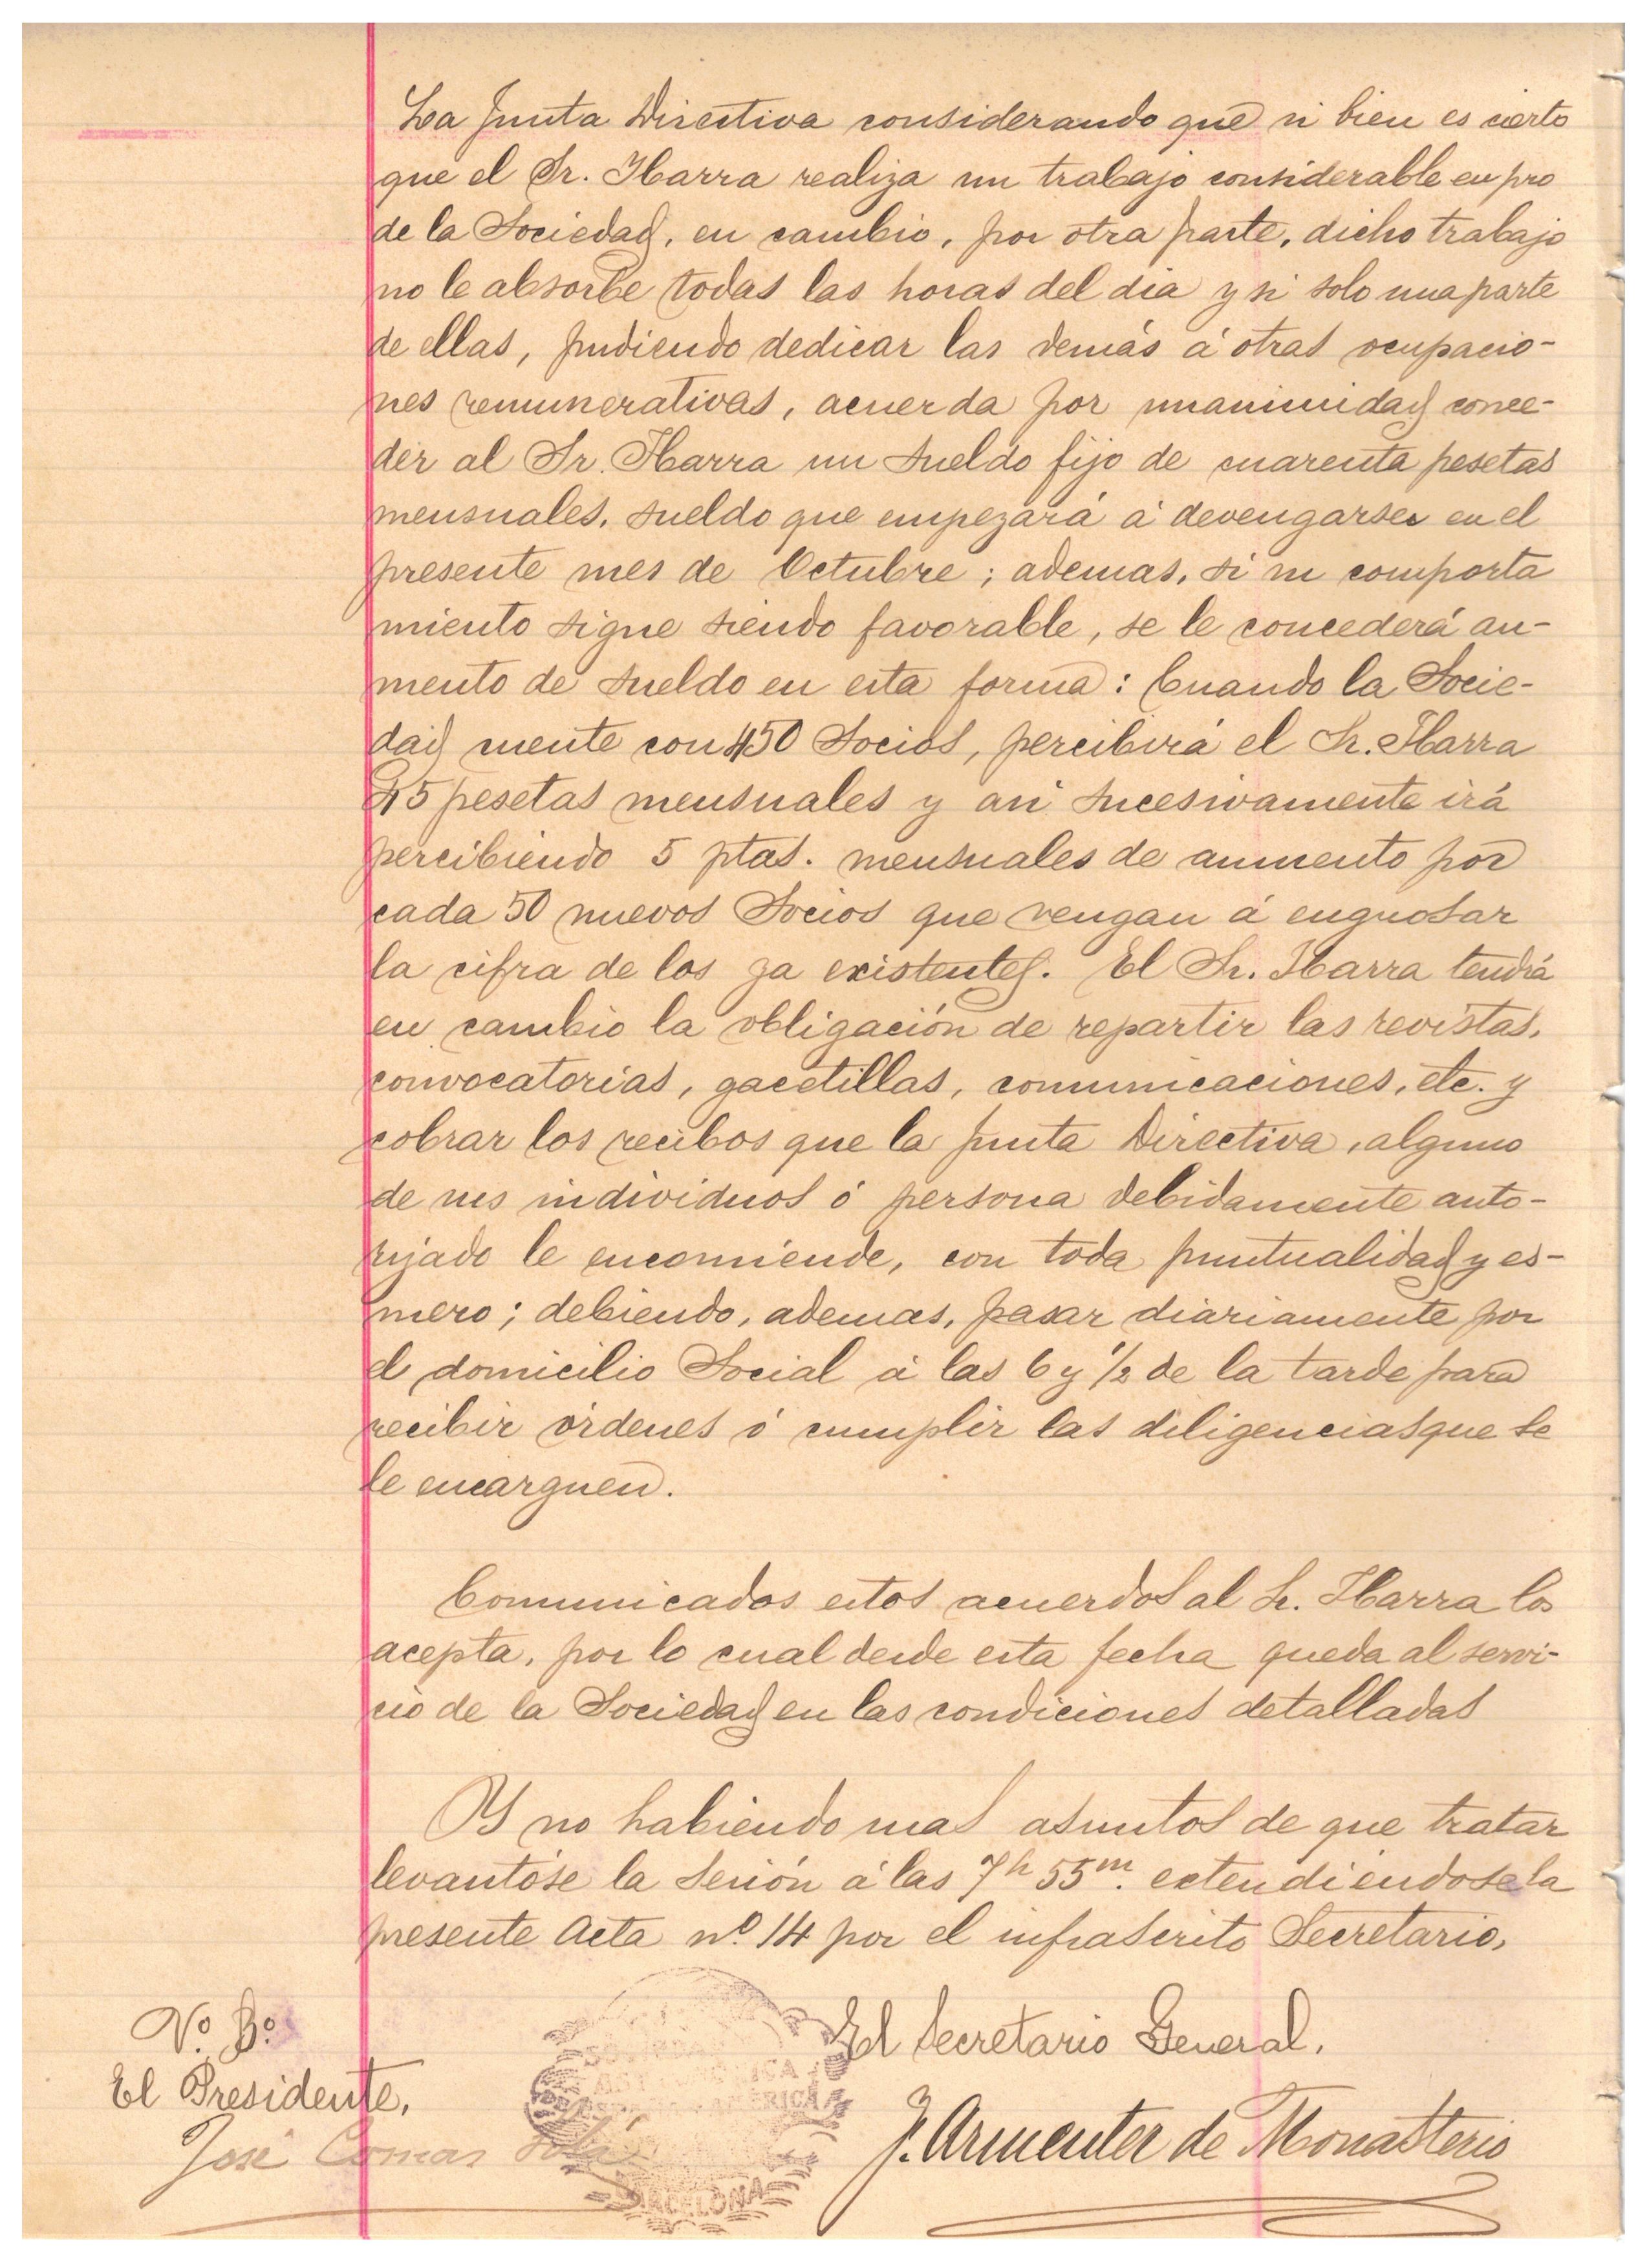 La Junta Directiva considerando que si bien es cierto
que el Sr. Ibarra realiza un trabajo considerable en pro
de la Sociedad, en cambio, por otra parte, dicho trabajo
no le absorbe todas las horas del dia y si solo una parte
de ellas, pudiendo dedicar las demás á otras ocupacio-
nes remunerativas, acuerda por unanimidad conce-
der al Sr. Ibarra un sueldo fijo de cuarenta pesetas
mensuales, sueldo que empezará á devengarse en el
presente mes de Octubre; ademas, si su comporta
miento sigue siendo favorable, se le concederá au-
mento de sueldo en esta forma: Cuando la Socie-
dad cuente con 450 Socios, percibirá el Sr. Ibarra
45 pesetas mensuales y asi sucesivamente irá
percibiendo 5 ptas. mensuales de aumento por
cada 50 nuevos Socios que vengan á engrosar
la cifra de los ya existentes. El Sr. Ibarra tendrá
en cambio la obligación de repartir las revistas,
convocatorias, gacetillas, comunicaciones, etc. y
cobrar los recibos que la Junta Directiva, alguno
de sus individuos ó persona debidamente auto-
rizado le encomiende, con toda puntualidad y es-
mero; debiendo, ademas, pasar diariamente por
el domicilio Social á las 6 y 1/2 de la tarde para
recibir órdenes ó cumplir las diligencias que se
le encarguen.
Comunicados estos acuerdos al Sr. Ibarra los
acepta, por lo cual desde esta fecha queda al servi-
cio de la Sociedad en las condiciones detalladas
Y no habiendo mas asuntos de que tratar
levantóse la sesión á las 7h 55m. extendiéndose la
presente Acta nº 14 por el infrascrito Secretario,
Vº Bº
El Presidente,
José Comas Solá
SOCIEDAD
ASTRONÓMICA
AMÉRICA
BARCELONA
El Secretario General,
J. Armenter de Monasterio